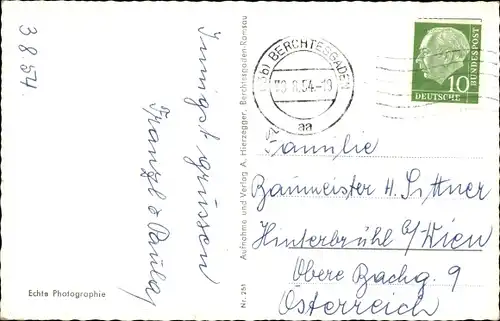 3.8.54.
Innigst grüssen
Franzl & Paula
Echte Photographie
Nr. 251 Aufnahme und Verlag A. Hierzegger, Berchtesgaden-Ramsau
BERCHTESGADEN
8.54.-19
aa
10
DEUTSCHE BUNDESPOST
Familie
Baumeister H. Sittner
Hinterbrühl b/Wien
Obere Bachg. 9
Österreich